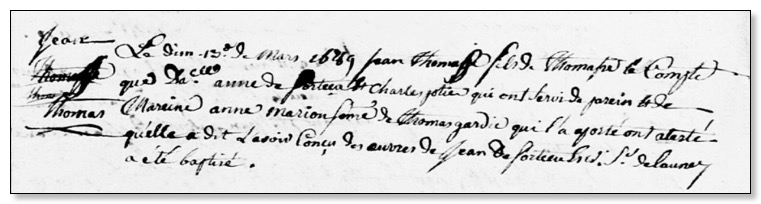 Jean
Thomasse
Thomas
Le dim. 13e de Mars 1689 jean Thomasse fils de Thomasse le Compte
que Da.elle anne de et Charles jolie qui ont servi de parein & de
Mareine anne marion feme de Thomas gardie qui l'a aporté ont atesté
qu'elle a dit l'avoir conçu des œuvres de Jean De Sr. de launey
a été baptisé.